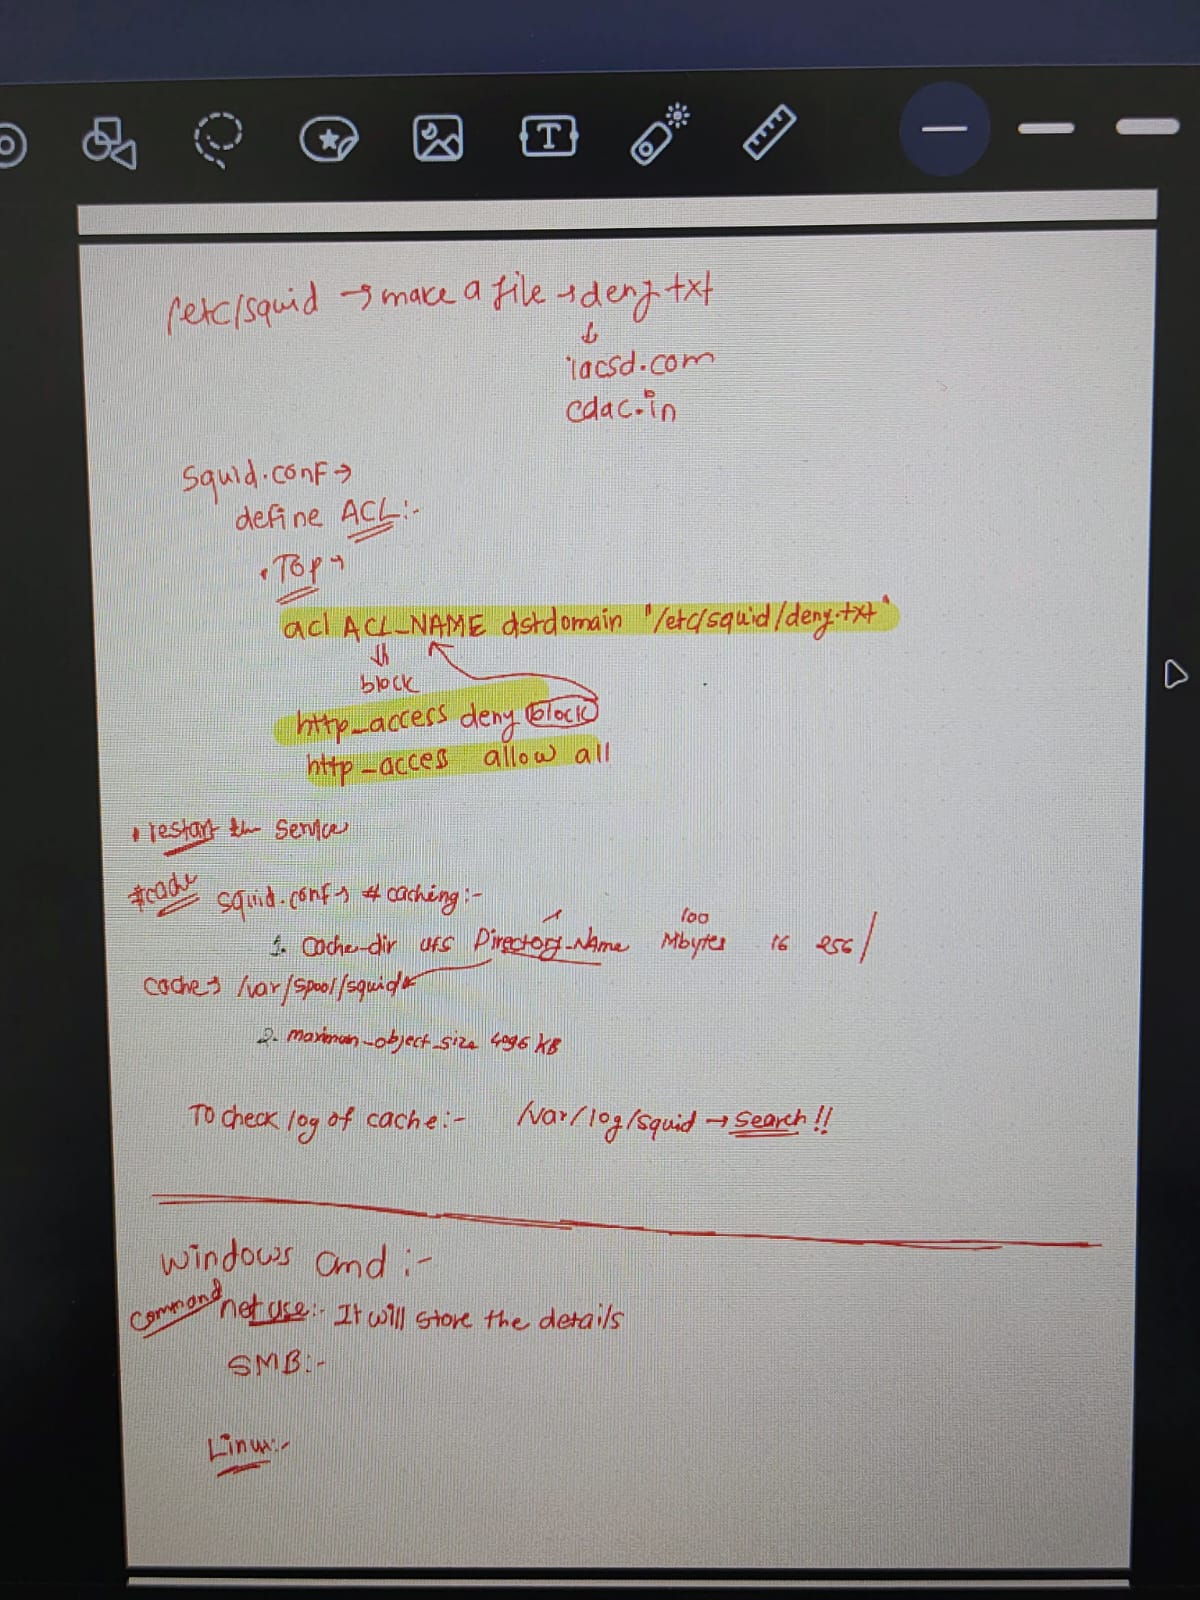 /etc/squid → make a file → deny.txt
↓
iacsd.com
cdac.in
Squid.conf →
define ACL:-
• Top →
acl ACL_NAME dstdomain "/etc/squid/deny.txt"
⇓
block
http_access deny block
http_acces allow all
• restart the Service
#cache squid.conf → # caching:-
100
1. Cache-dir ufs Directory-Name Mbytes 16 256/
cache → /var/spool/squid
2. maximum_object_size 4096 KB
To check log of cache:- /var/log/squid → Search!!
Windows cmd :-
command net use:- It will store the details
SMB:-
Linux:-